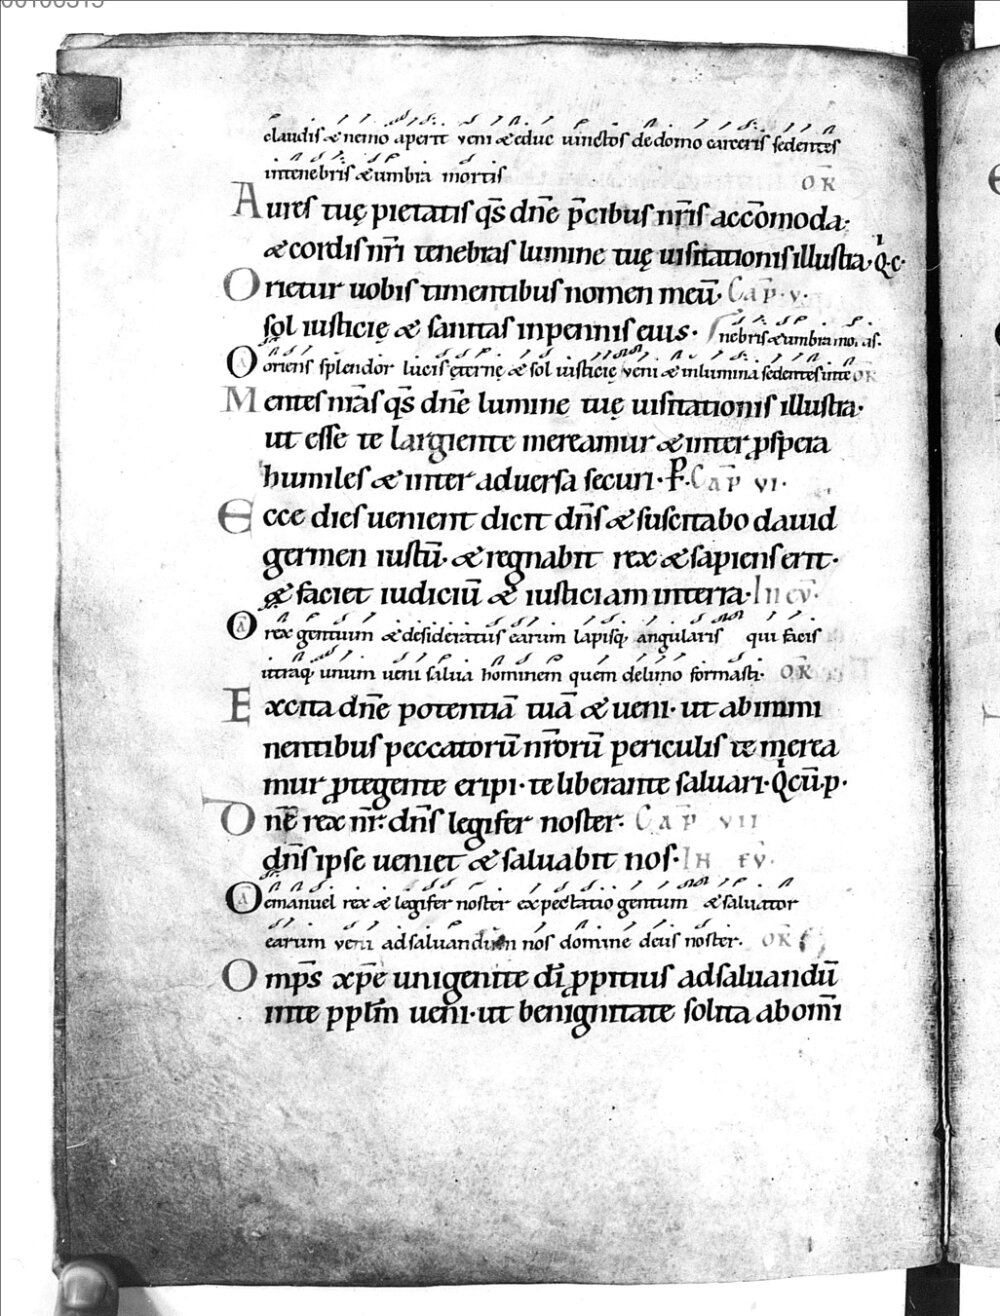 claudis & nemo aperit veni & educ uinctos de domo carceris sedentes
intenebris & umbra mortis OR̄
Aures tuę pietatis q̄s dn̄e p̄cibus nr̄is accōmoda;
& cordis nr̄i tenebras lumine tuę uisitationis illustra. Q.c.
Orietur uobis timentibus nomen meū. Cap̄. v.
sol iusticię & sanitas inpennis eius. nebris & umbra mo. as.
O oriens splendor lucis ęternę & sol iusticię veni & inlumina sedentes inte OR̄
Mentes nr̄as q̄s dn̄e lumine tuę uisitationis illustra.
ut esse te largiente mereamur & inter ꝓspera
humiles & inter aduersa securi. P. Cap̄ VI.
Ecce dies uenient dicit dn̄s & suscitabo dauid
germen iustū. & regnabit rex & sapiens erit.
& faciet iudiciū & iusticiam interra. In ev̄.
O A rex gentium & desideratus earum lapisq; angularis qui facis
utraq; unum ueni salua hominem quem delimo formasti. OR̄
Excita dn̄e potentiā tuā & ueni. ut abimmi
nentibus peccatorū nr̄orū periculis te merea
mur ꝓtegente eripi. te liberante saluari. Qcū.p.
Dn̄e rex nr̄ dn̄s legifer noster. Cap̄ VII
dn̄s ipse ueniet & saluabit nos. IN EV̄.
O A emanuel rex & legifer noster expectatio gentium & saluator
earum veni adsaluandum nos domine deus noster. OR̄
Omp̄s xp̄e unigenite dī ꝓpitius adsaluandū
inte pplm̄ ueni. ut benignitate solita abomī